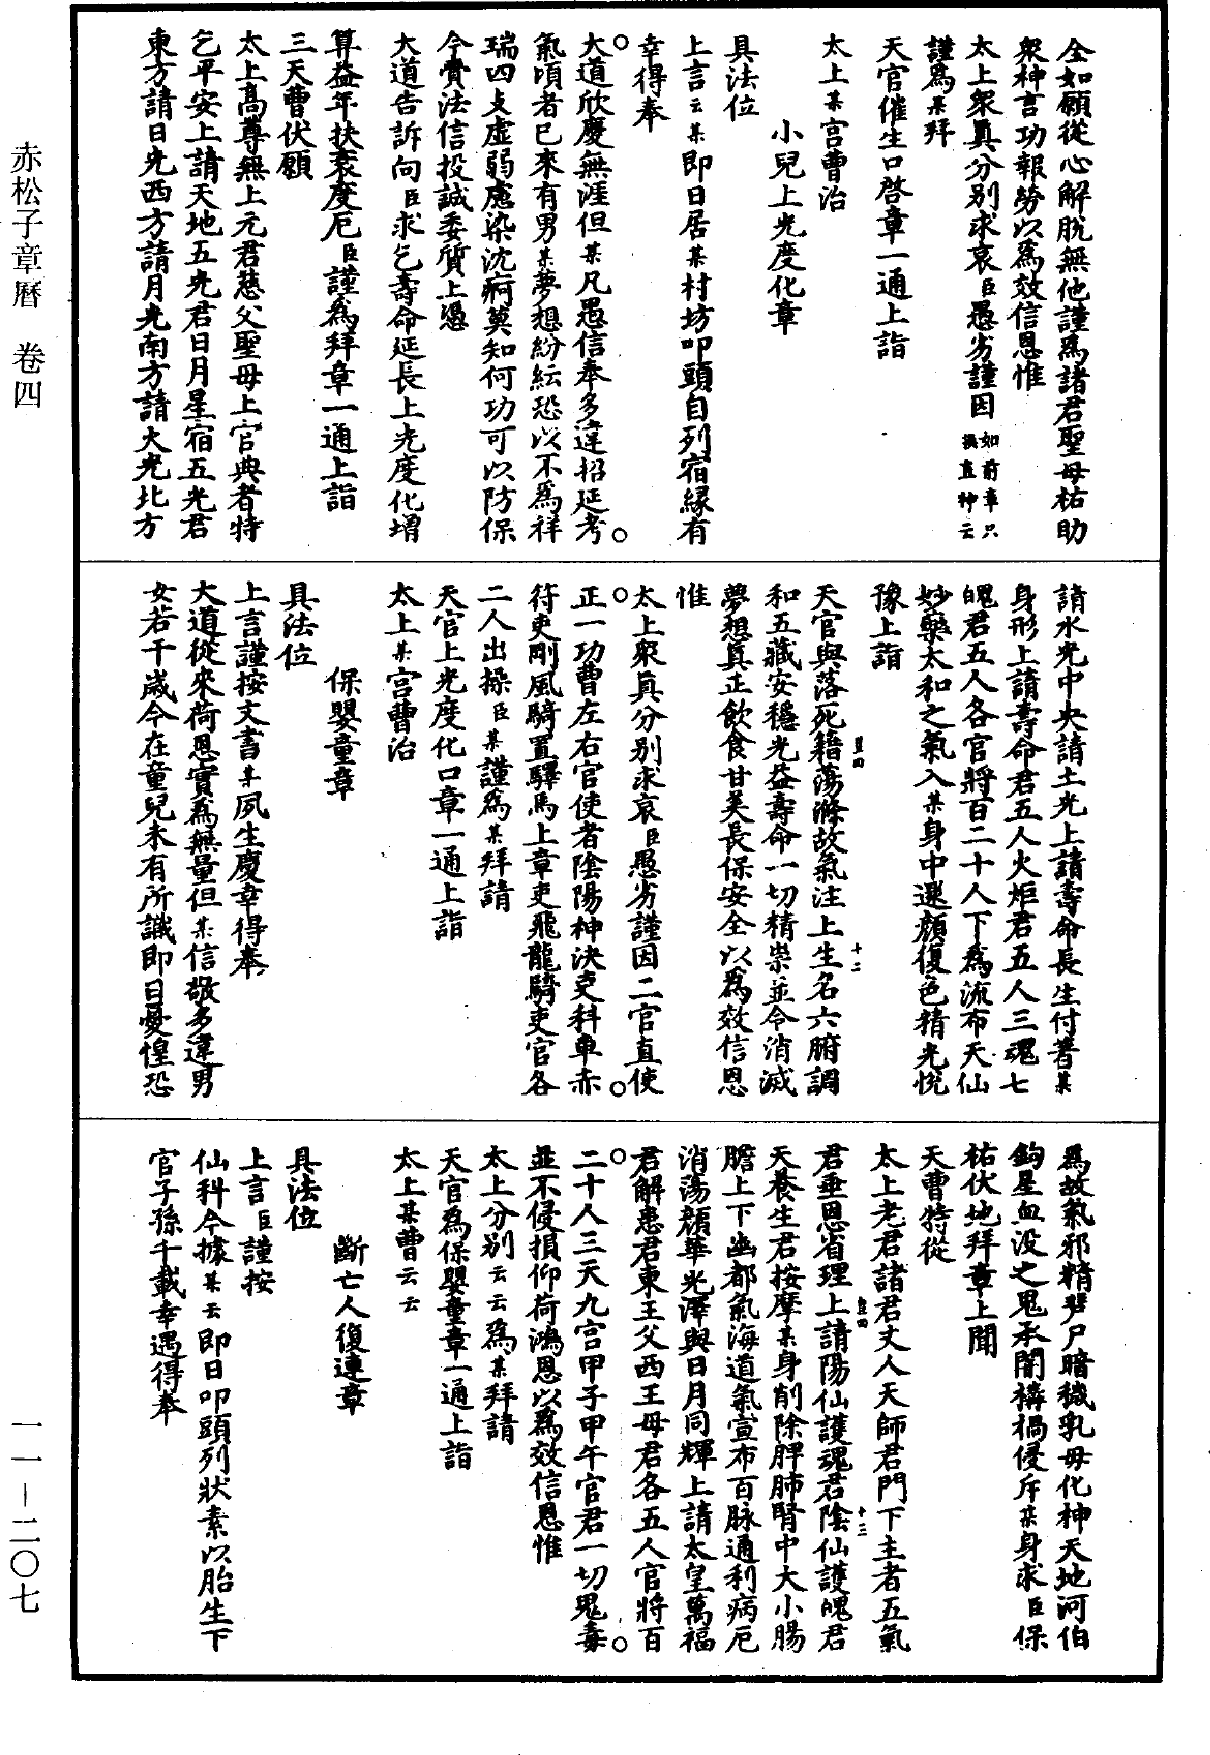 赤松子章曆　卷四
一一－二〇七
全如願從心解脫無他謹爲諸君聖母祐助
衆神言功報勞以爲效信恩惟
太上衆眞分別求哀臣愚劣謹因如前章只換直神云
謹爲某拜
天官催生口啓章一通上詣
太上某宮曹治
小兒上光度化章
具法位
上言云某即日居某村坊叩頭自列宿緣有
幸得奉
大道欣慶無涯但某凡愚信奉多違招延考
氣頃者已來有男某夢想紛紜恐以不爲祥
瑞四支虛弱慮染沈痾莫知何功可以防保
今賫法信投誠委質上憑
大道告訴向臣求乞壽命延長上光度化增
算益年扶衰度厄臣謹爲拜章一通上詣
三天曹伏願
太上高尊無上元君慈父聖母上官典者特
乞平安上請天地五光君日月星宿五光君
東方請日光西方請月光南方請火光北方
請水光中央請土光上請壽命長生付著某
身形上請壽命君五人火炬君五人三魂七
魄君五人各官將百二十人下爲流布天仙
妙藥太和之氣入某身中還顏復色精光悅
豫上詣
天官與落死籍蕩滌故氣注上生名六腑調
和五藏安穩光益壽命一切精祟並令消滅
夢想眞正飲食甘美長保安全以爲效信恩
惟
太上衆眞分別求哀臣愚劣謹因二官直使
正一功曹左右官使者陰陽神決吏科車赤
符吏剛風騎置驛馬上章吏飛龍騎吏官各
二人出操臣某謹爲某拜請
天官上光度化口章一通上詣
太上某宮曹治
保嬰童章
具法位
上言謹按文書某夙生慶幸得奉
大道從來荷恩實爲無量但某信敬多違男
女若干歲今在童兒未有所識即日憂惶恐
爲故氣邪精斃尸暗穢乳母化神天地河伯
鉤星血没之鬼承閒構禍侵斥某身求臣保
祐伏地拜章上聞
天曹特從
太上老君諸君丈人天師君門下主者五氣
君垂恩省理上請陽仙護魂君陰仙護魄君
天養生君按摩某身削除脾肺腎中大小腸
膽上下幽都氣海道氣宣布百脉通利病厄
消蕩顏華光澤與日月同輝上請太皇萬福
君解患君東王父西王母君各五人官將百
二十人三天九宮甲子甲午官君一切鬼毒
並不侵損仰荷鴻恩以爲效信恩惟
太上分別云云爲某拜請
天官爲保嬰童章一通上詣
太上某曹云云
斷亡人復連章
具法位
上言臣謹按
仙科今據某云即日叩頭列狀素以胎生下
官子孫千載幸遇得奉